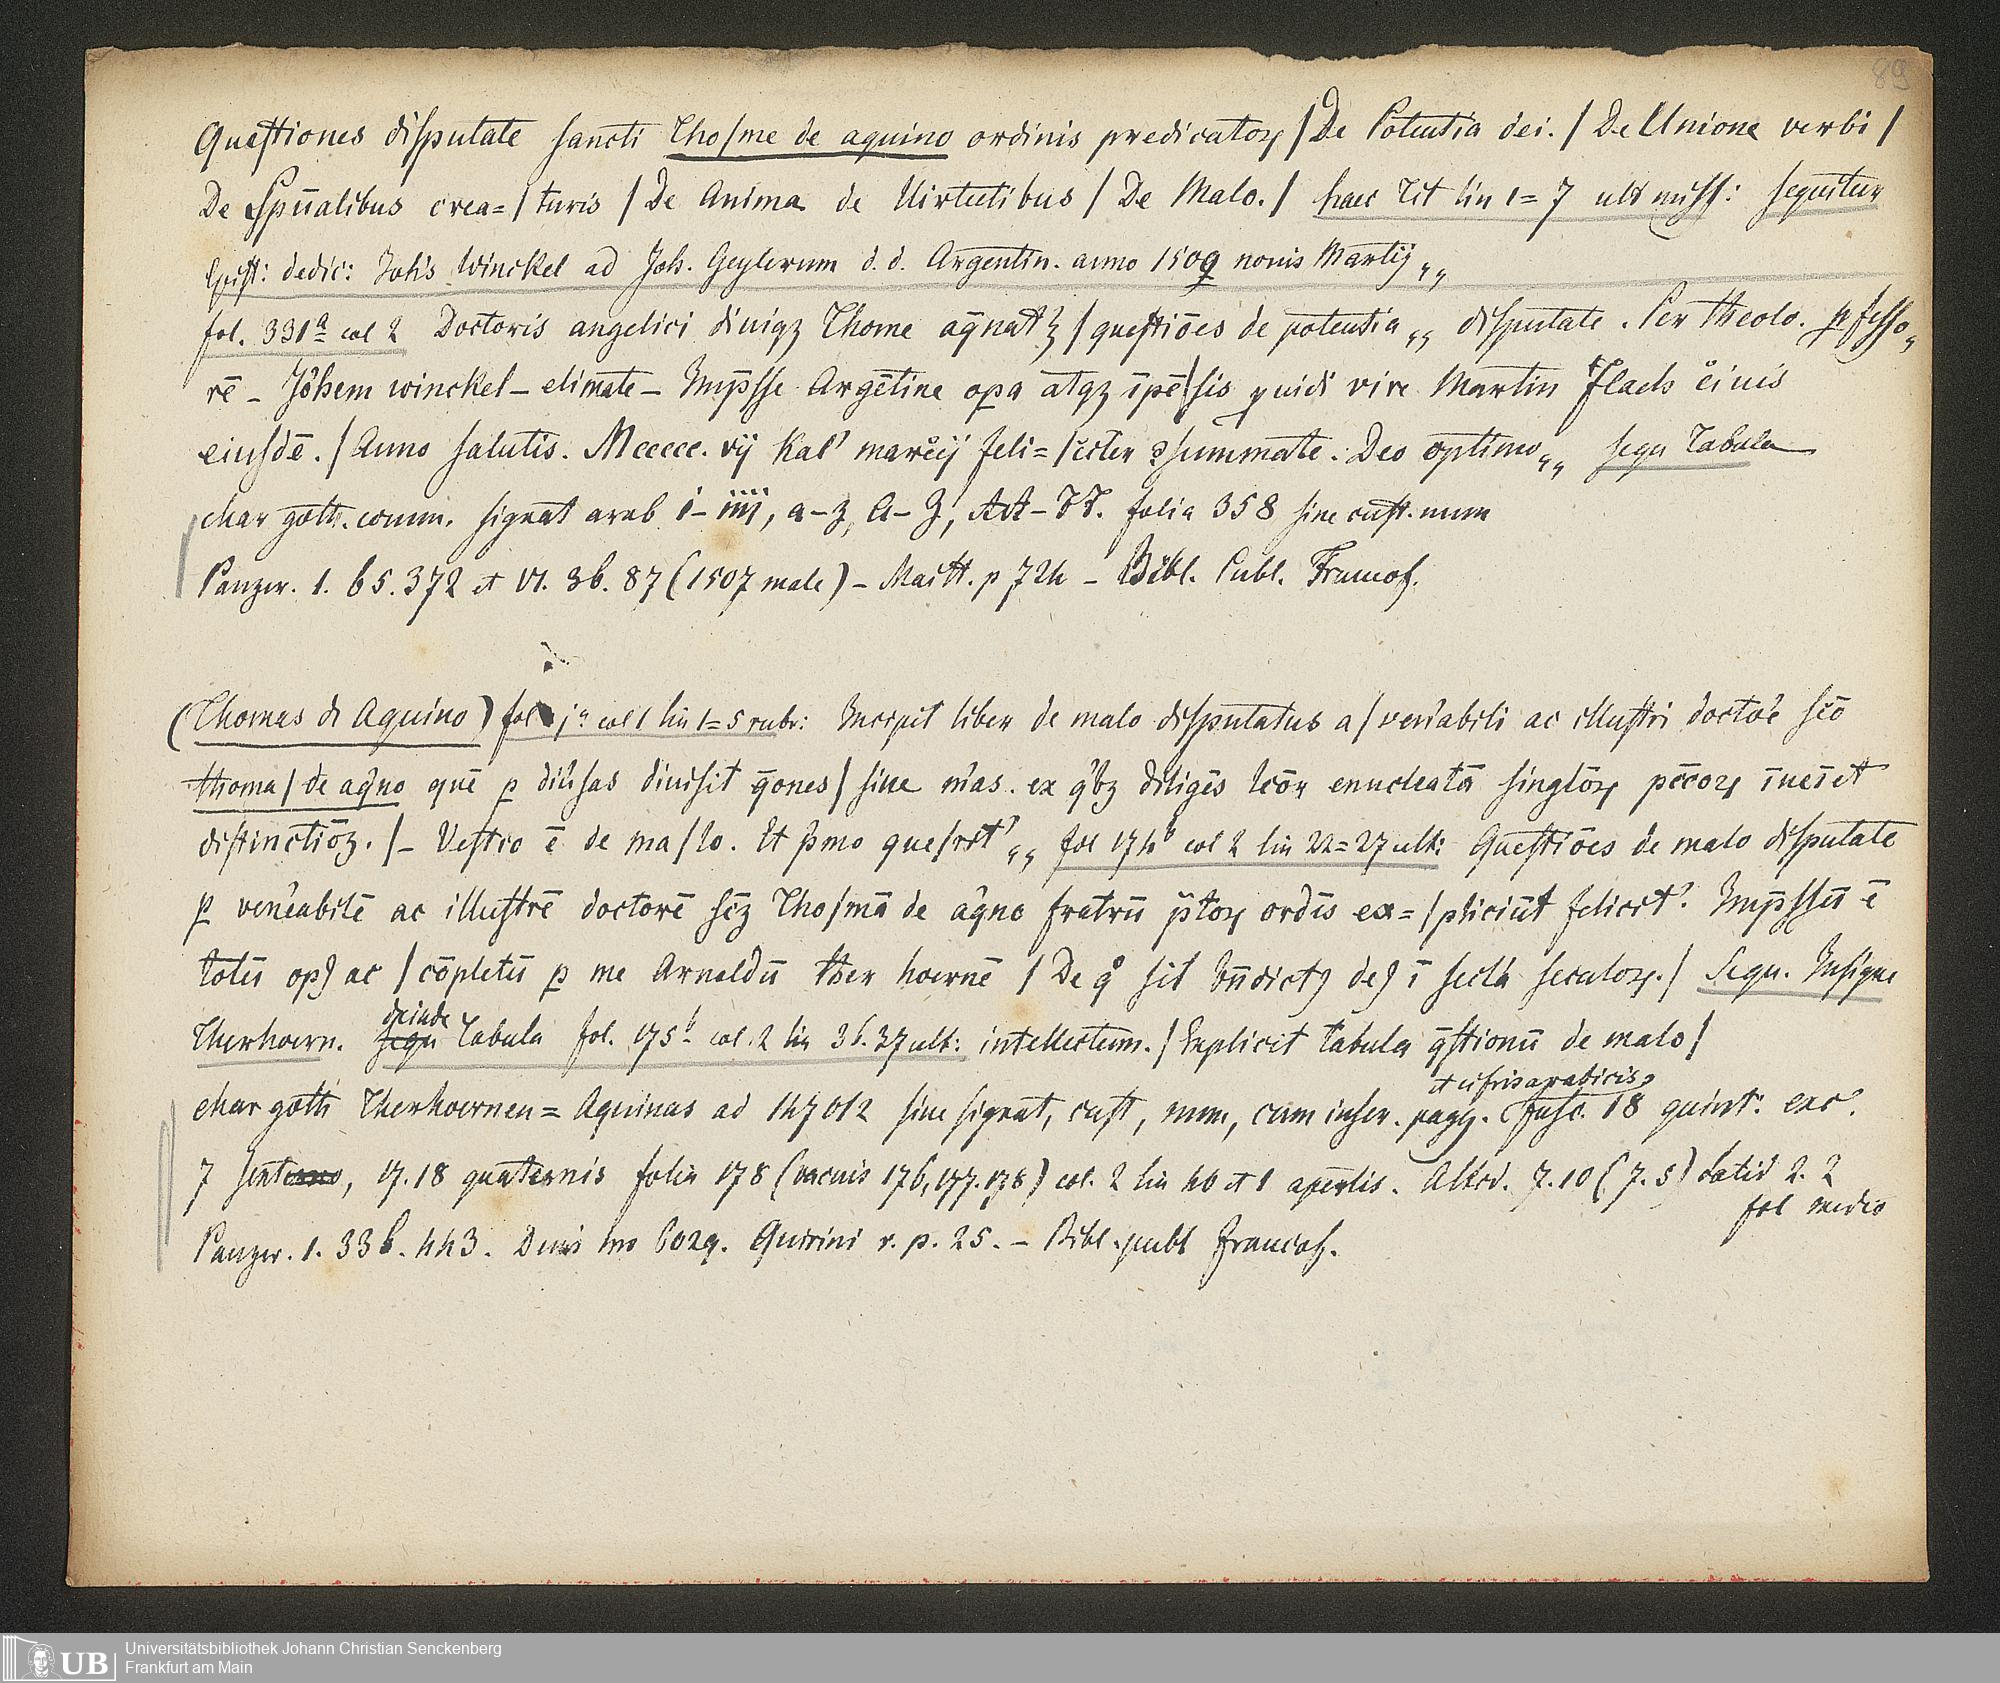 89
Questiones disputate sancti Tho/me de aquino ordinis predicatoꝝ / De Potentia dei. / De Unione verbi /
De Spūalibus crea= / turis / De Anima de Uirtutibus / De Malo. / haec Tit lin 1=7 ult miss: sequitur
Epist: dedic: Johīs Winckel ad Joh. Geylerum d. d. Argentin. anno 1509 nonis Martij „
fol. 331ª col 2 Doctoris angelici diuiqꝫ Thome aq̄nat / questiōes de potentia „ disputate . Per theolo. ꝓfesso„
rē – Jōhem winckel – elimate – Imp̄sse Argētine opa atqꝫ īpē/sis ꝓuidi viri Martin Flach ciuis
eiusdē. / Anno salutis. Mccccc. vij Kal' marcij feli= / citer ꝯsummate. Deo optimo „ sequ Tabula
char goth. comm. signat arab i – iiij, a–z, A–Z, AA–TT. folia 358 sine cust. num
Panzer. 1. 65. 372 et VI. 36. 87 (1507 male) – Maitt. p 724 – Bibl. Publ. Francof.
(Thomas de Aquino) fol 1ª col 1 lin 1=5 rubr: Incipit liber de malo disputatus a / ven'abili ac illustri docto'e scō
thoma / de aq̄no quē ꝑ diu'sas diuisit q̄ones / siue m'as. ex q'bꝫ diligēs lcōr enucleatā singloꝝ pccoꝝ īueīet
distinctiōꝫ. /– Uestio ē de ma/lo. Et p̄mo que/rit' „ fol 174ᵇ col 2 lin 22=27 ult: Questiōes de malo disputate
ꝑ ven'eabilē ac illustrē doctorē scꝫ Tho/mā de aq̄no fratrū p̄toꝝ ordīs ex= / pliciūt felicit'. Imp̄ssū ē
totū opꝰ ac / cōpletū ꝑ me Arnoldū ther hoernē / De q̊ sit bn̄dictꝰ deꝰ ī secla seculoꝝ. / Sequ. Insigne
Therhoern. deinde Tabula fol. 175ᵇ col. 2 lin 36. 37 ult: intellectum. / Explicit tabula q̄stionū de malo /
char goth Therhoernen = Aquinas ad 147012 sine signat, cust, num, cum inscr. pagg. et cifris arabicis, fasc. 18 quint: exc.
7 , 17. 18 quaternis folia 178 (vacuis 176, 177. 178) col. 2 lin 46 et 1 apertis. Altid. 7. 10 (7. 5) Latid 2. 2
fol medio
Panzer. 1. 336. 443. Denis 6029. Quirini r. p. 25. – Bibl. publ Francof.
UB Universitätsbibliothek Johann Christian Senckenberg
Frankfurt am Main